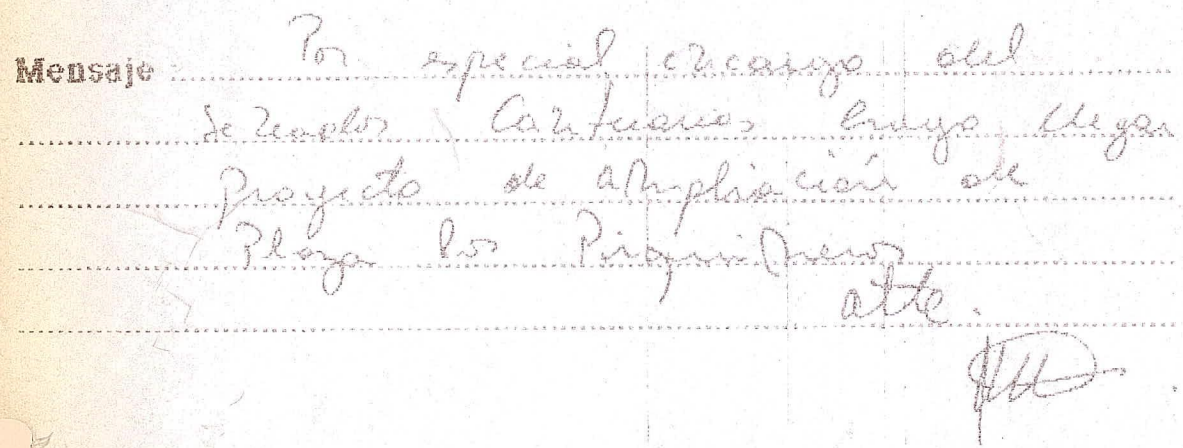 Mensaje Por especial encargo del
Cantuarias hago llegar
Proyecto de Ampliación de
Plaza los Pirquineros
atte.